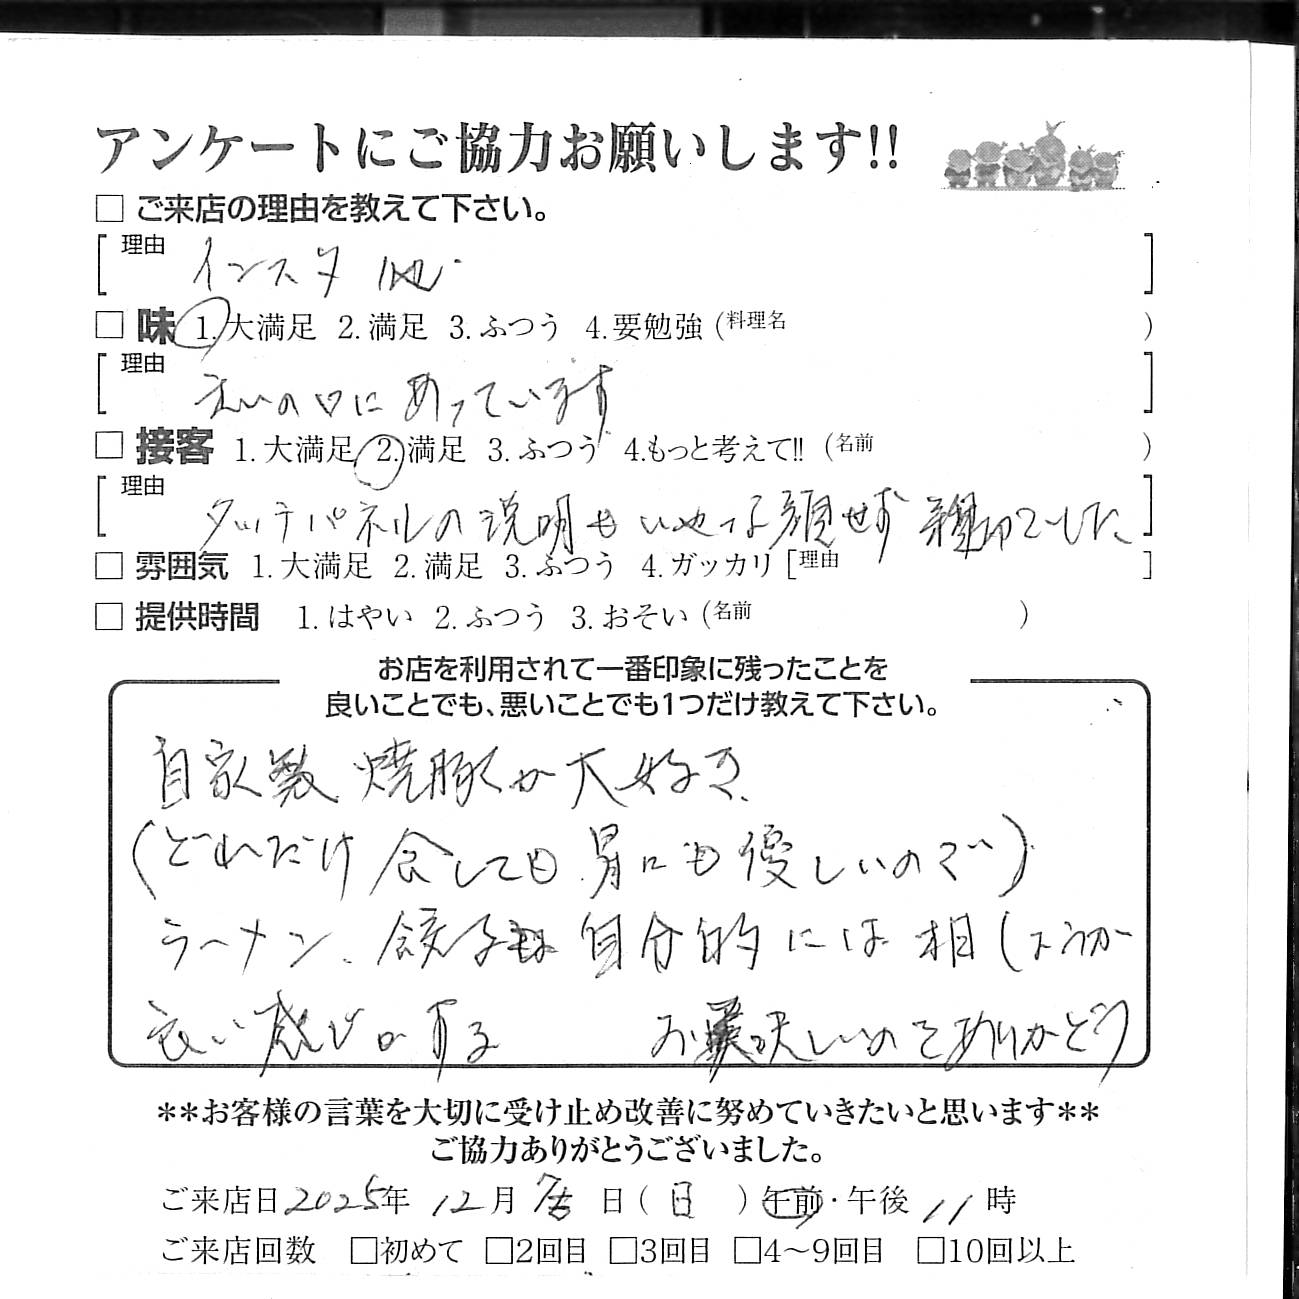 アンケートにご協力お願いします!!
□ ご来店の理由を教えて下さい。
理由 インスタ 他
□ 味 1.大満足 2.満足 3.ふつう 4.要勉強 (料理名 )
理由 私の口にあっています
□ 接客 1.大満足 2.満足 3.ふつう 4.もっと考えて!! (名前 )
理由 タッチパネルの説明もいやな顔せず 親切でした
□ 雰囲気 1.大満足 2.満足 3.ふつう 4.ガッカリ [理由 ]
□ 提供時間 1.はやい 2.ふつう 3.おそい (名前 )
お店を利用されて一番印象に残ったことを
良いことでも、悪いことでも1つだけ教えて下さい。
自家製 焼豚が大好き
(どれだけ食しても胃にも優しいので)
ラーメン、餃子 自分的には相しょうが
良い感じがする お美味しいのでありがどう
**お客様の言葉を大切に受け止め改善に努めていきたいと思います**
ご協力ありがとうございました。
ご来店日 2025年 12月 日(日) 午前・午後 11時
ご来店回数 □初めて □2回目 □3回目 □4〜9回目 □10回以上